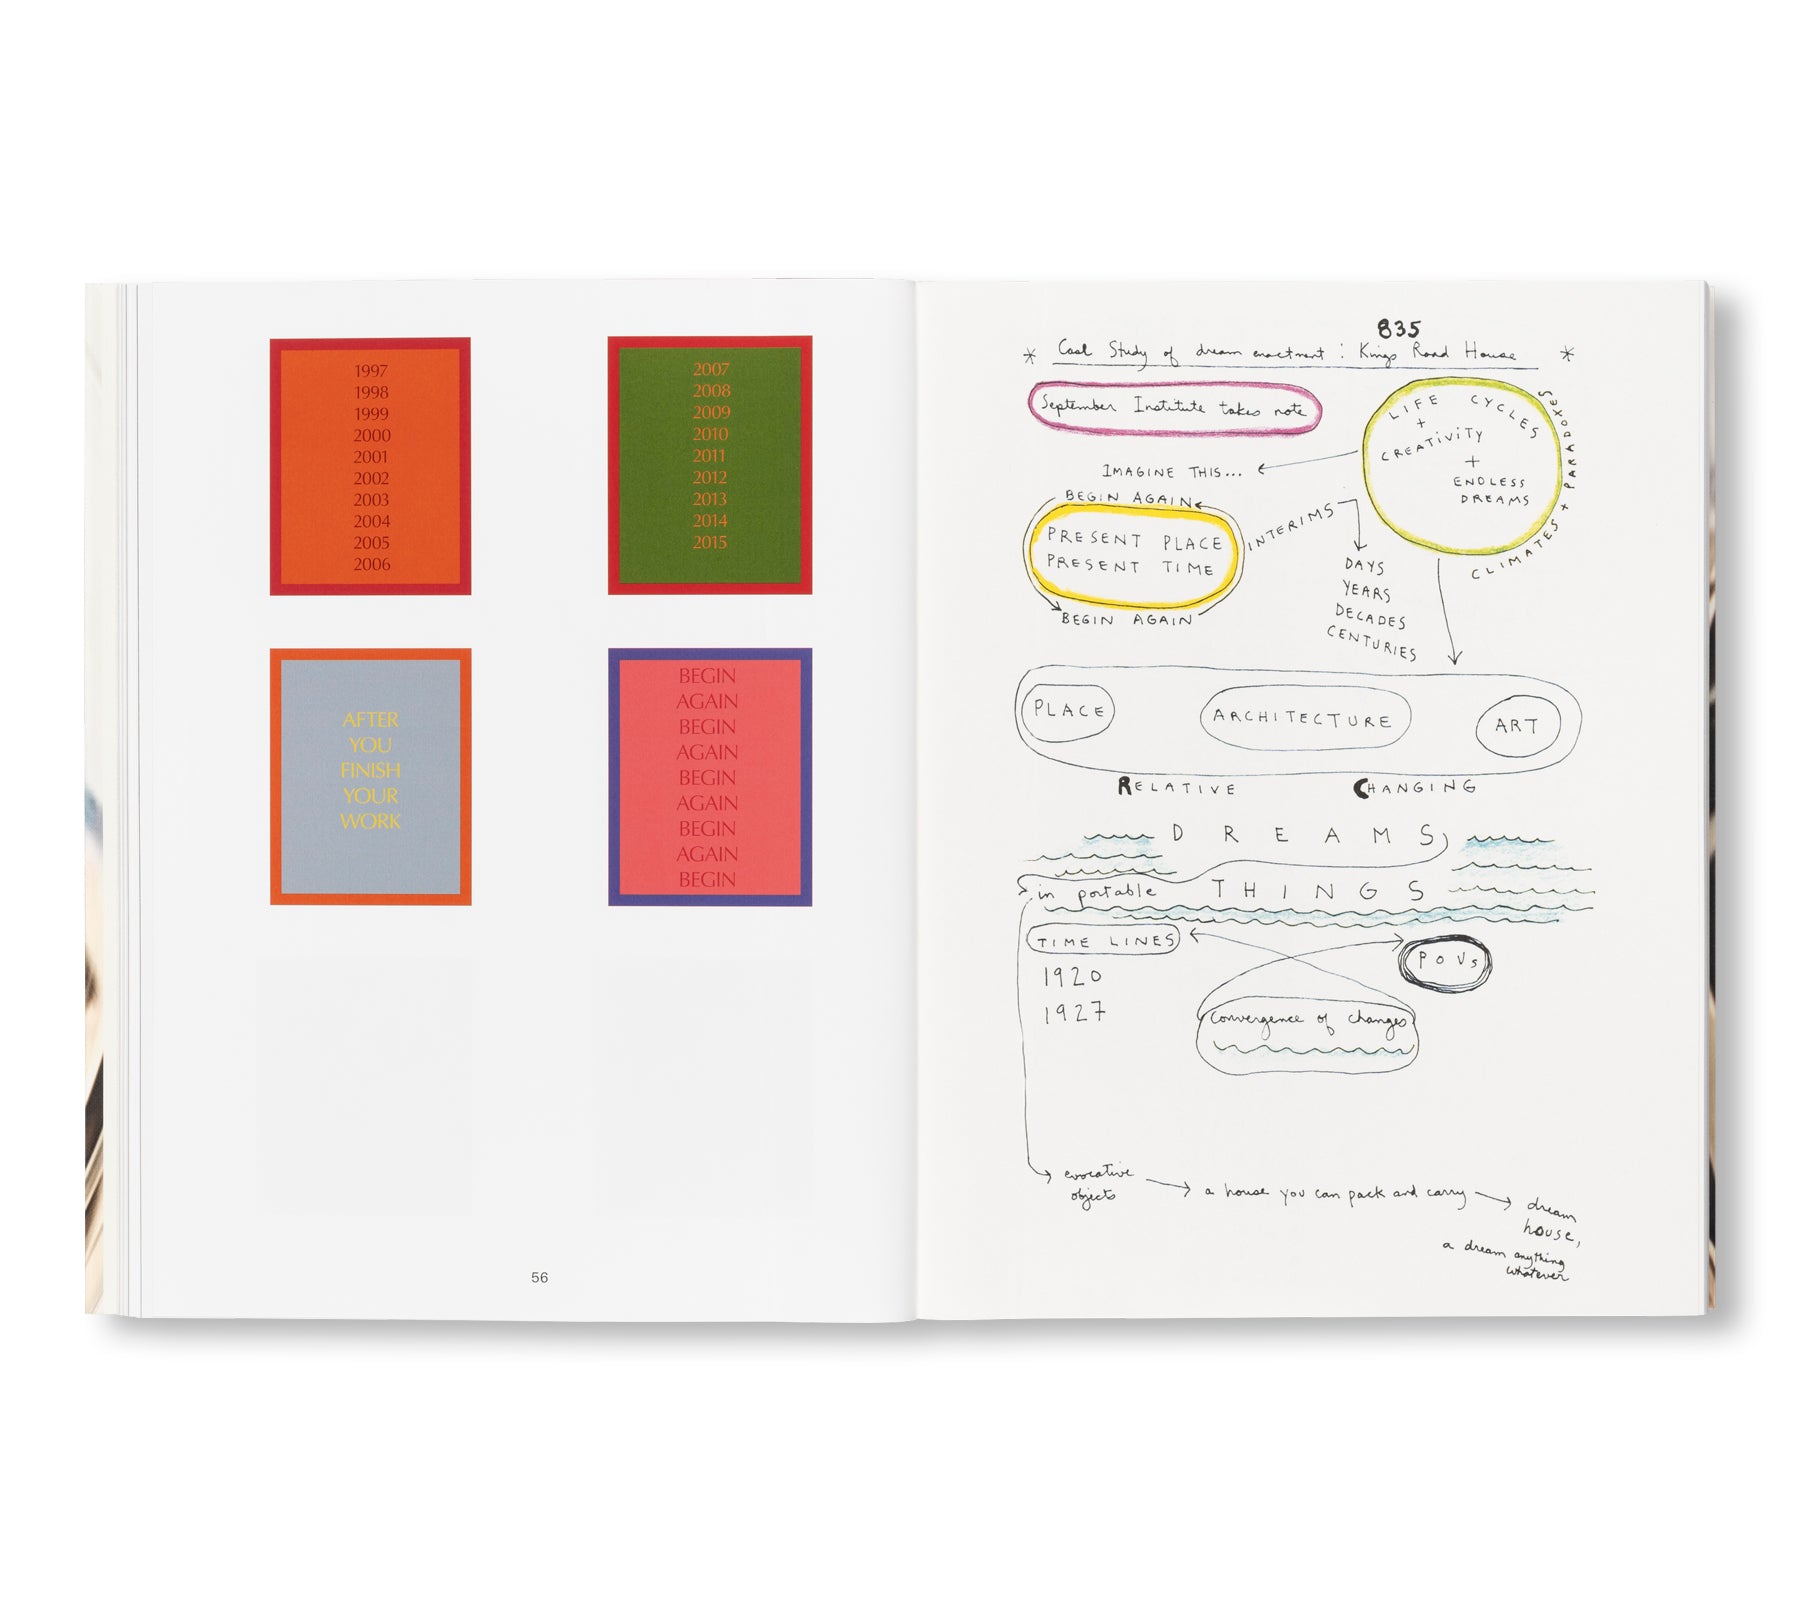 1997
1998
1999
2000
2001
2002
2003
2004
2005
2006
2007
2008
2009
2010
2011
2012
2013
2014
2015
AFTER
YOU
FINISH
YOUR
WORK
BEGIN
AGAIN
BEGIN
AGAIN
BEGIN
AGAIN
BEGIN
AGAIN
BEGIN
56
835
* Study of dream enactment : Kings Road House *
September Institute takes note
LIFE CYCLES
+
CREATIVITY
+
ENDLESS
DREAMS
CLIMATES + PARADOXES
IMAGINE THIS...
BEGIN AGAIN
PRESENT PLACE
PRESENT TIME
BEGIN AGAIN
INTERIMS
DAYS
YEARS
DECADES
CENTURIES
PLACE ARCHITECTURE ART
RELATIVE CHANGING
DREAMS
in portable THINGS
TIME LINES
POVs
1920
1927
Convergence of changes
evocative
objects
a house you can pack and carry
dream
house,
a dream anything
whatever